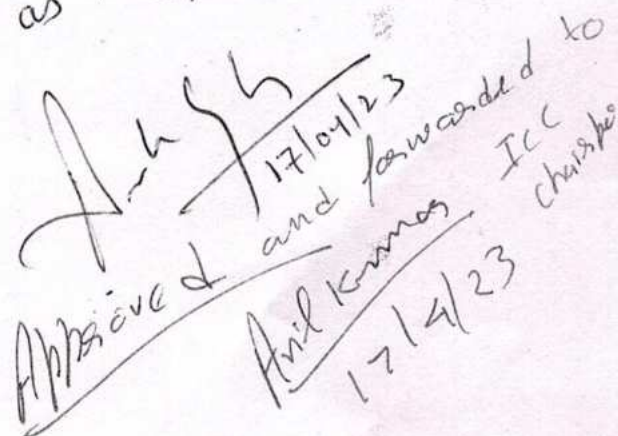 as
17/04/23
Approved and forwarded to
ICC
Anil Kumar
17/4/23